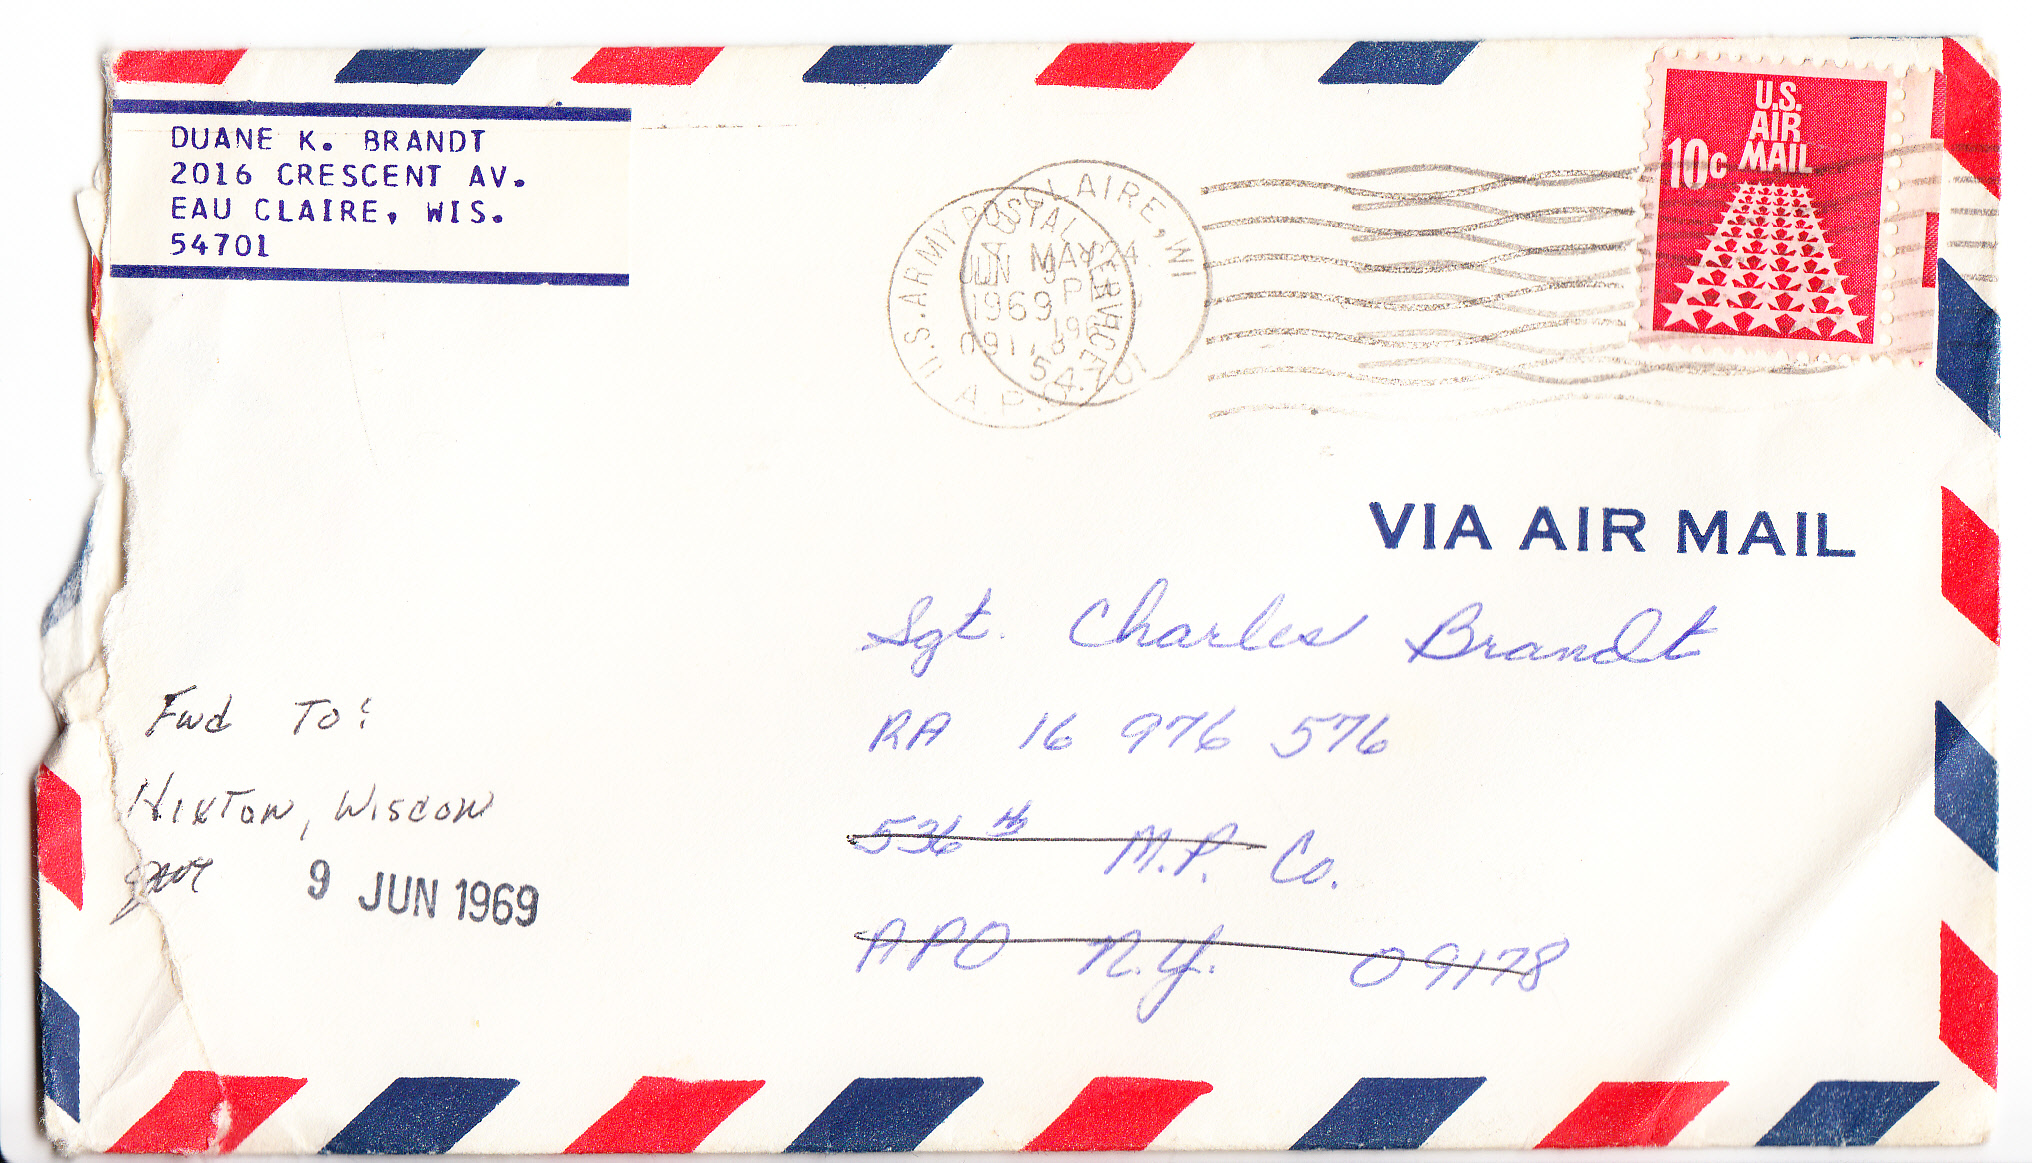 DUANE K. BRANDT
2016 CRESCENT AV.
EAU CLAIRE, WIS.
54701
U.S.
AIR
MAIL
10c
CLAIRE, WI
MAY 24
PM
54701
U.S. ARMY POSTAL SERVICE
JUN
1969
A.P.
VIA AIR MAIL
Sgt. Charles Brandt
RA 16 976 576
536th M.P. Co.
APO N.Y. 09178
Fwd To:
Hixton, Wiscon
9 JUN 1969